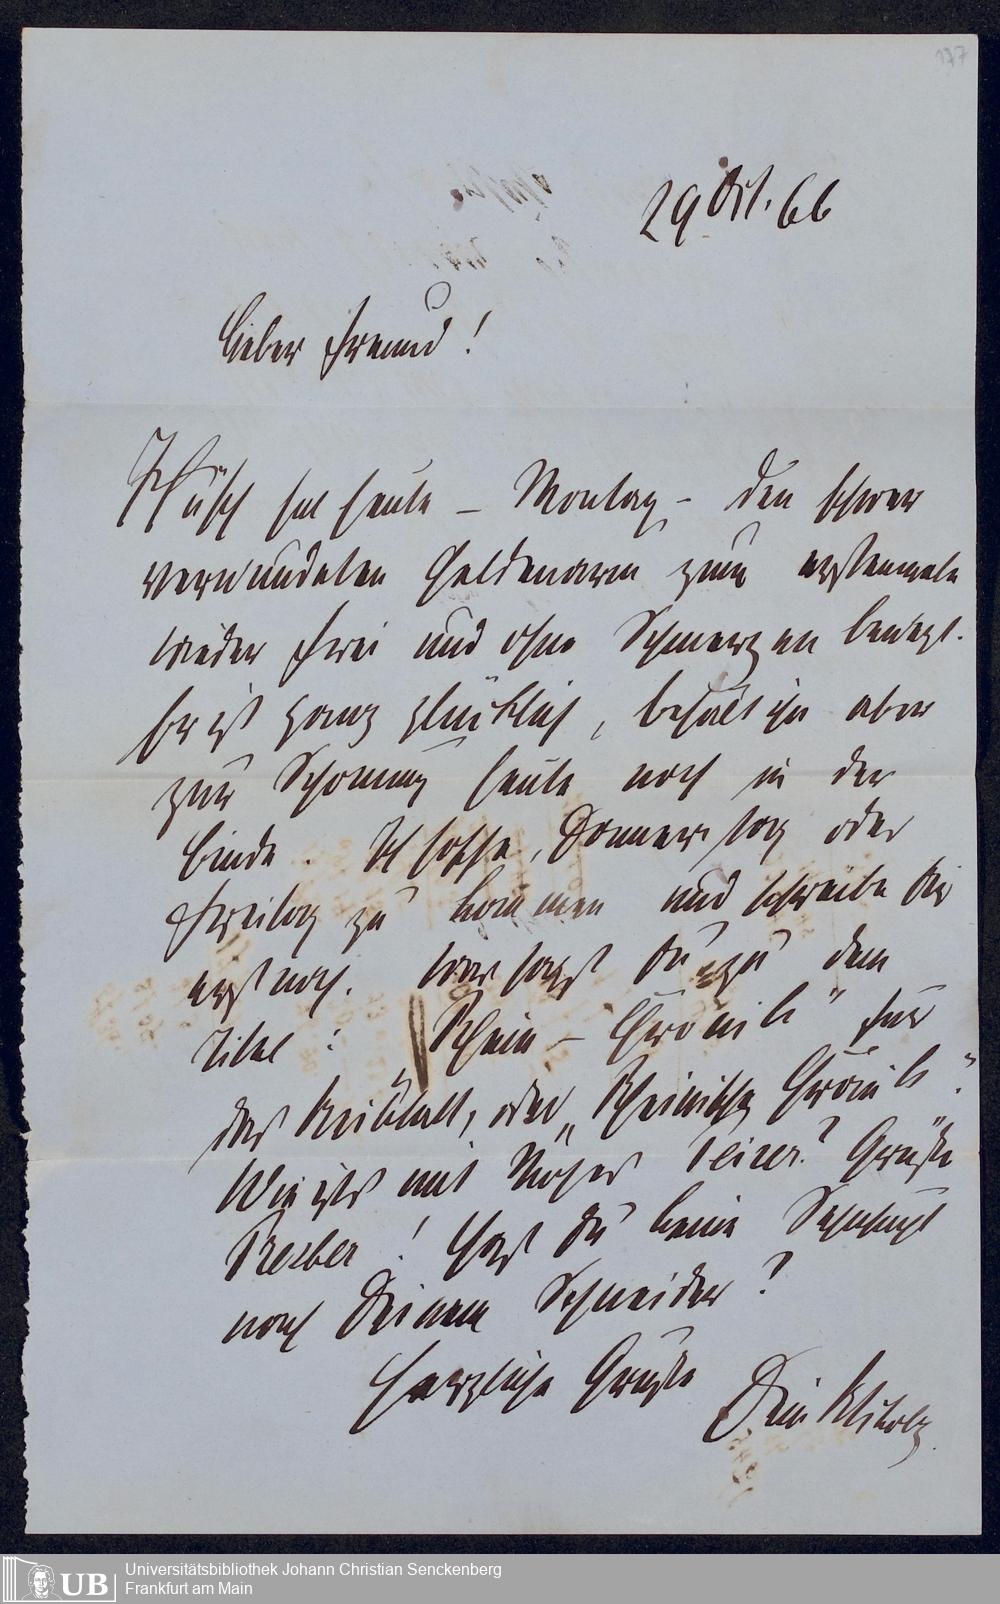 177
29 Oct. 66
Lieber Freund!
hat heute – Montag – den schwer
verwundeten Heldenarm zum erstenmale
wieder frei und ohne Schmerzen bewegt.
Er ist ganz glücklich, behält ihn aber
zur Schonung heute noch in der
Binde. Ich hoffe, Donnerstag oder
Freitag zu kommen und schreibe Dir
erst noch. Was sagst Du zu dem
Titel: „Rhein-Chronik" für
das Beiblatt, oder „Rheinische Chronik".
Wie ists mit Grüße
! Hast Du keine Sehnsucht
nach Deinem Schneider?
Herzliche Grüße
Dein
Universitätsbibliothek Johann Christian Senckenberg
Frankfurt am Main
UB